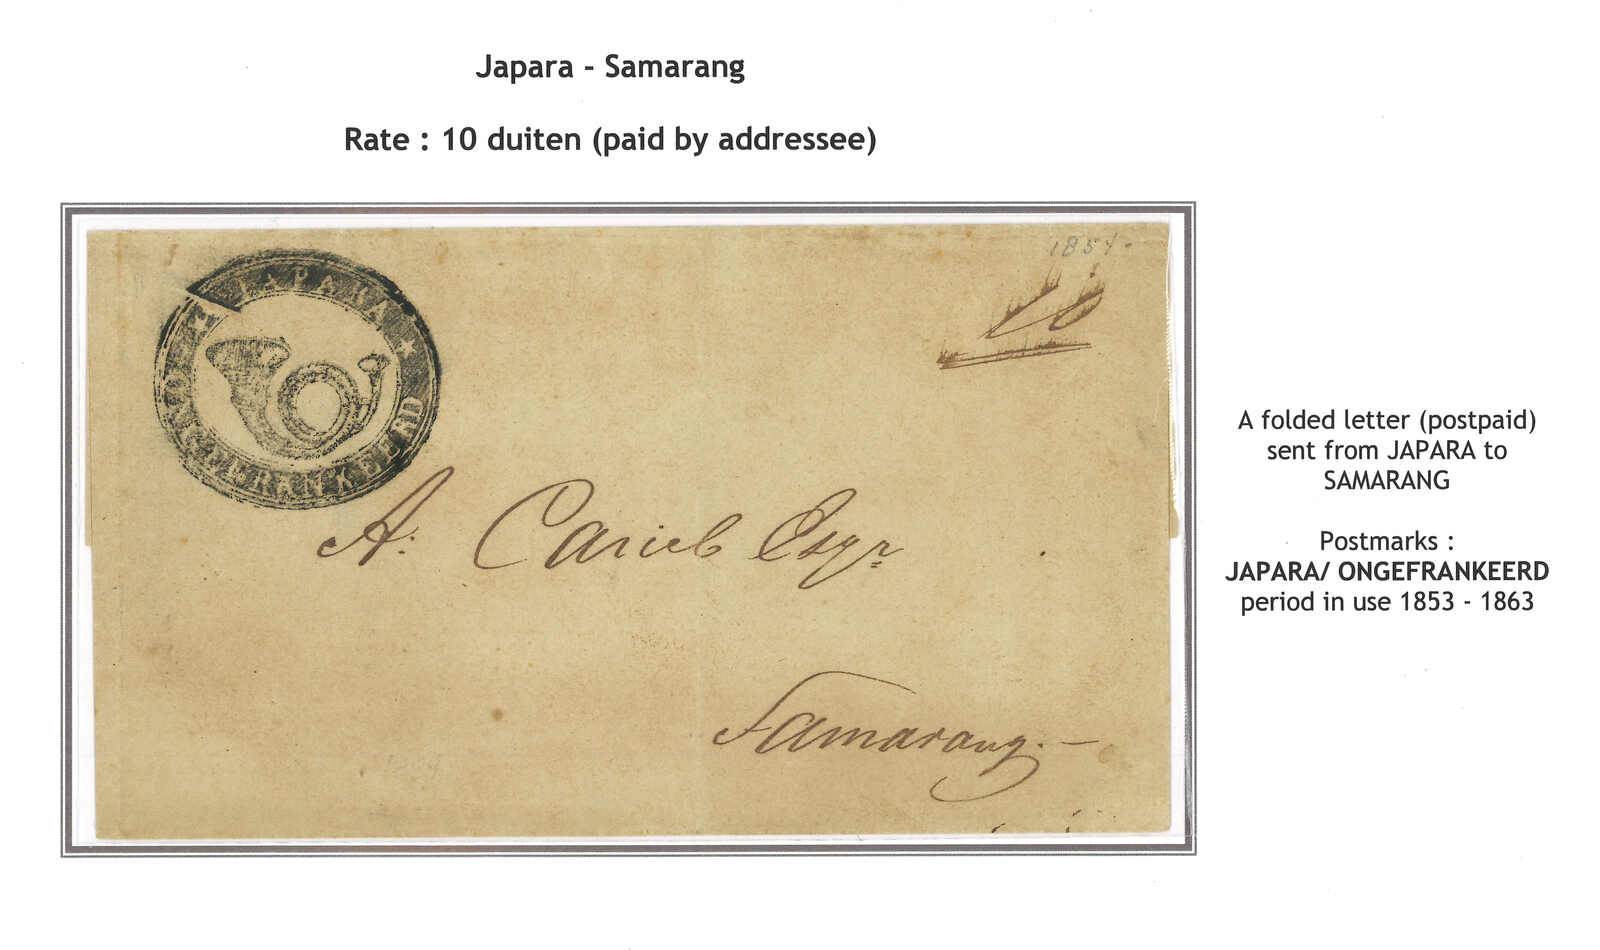 Japara - Samarang
Rate : 10 duiten (paid by addressee)
JAPARA
ONGEFRANKEERD
1854.
10
A. Esqr
Samarang. —
A folded letter (postpaid)
sent from JAPARA to
SAMARANG
Postmarks :
JAPARA/ ONGEFRANKEERD
period in use 1853 - 1863